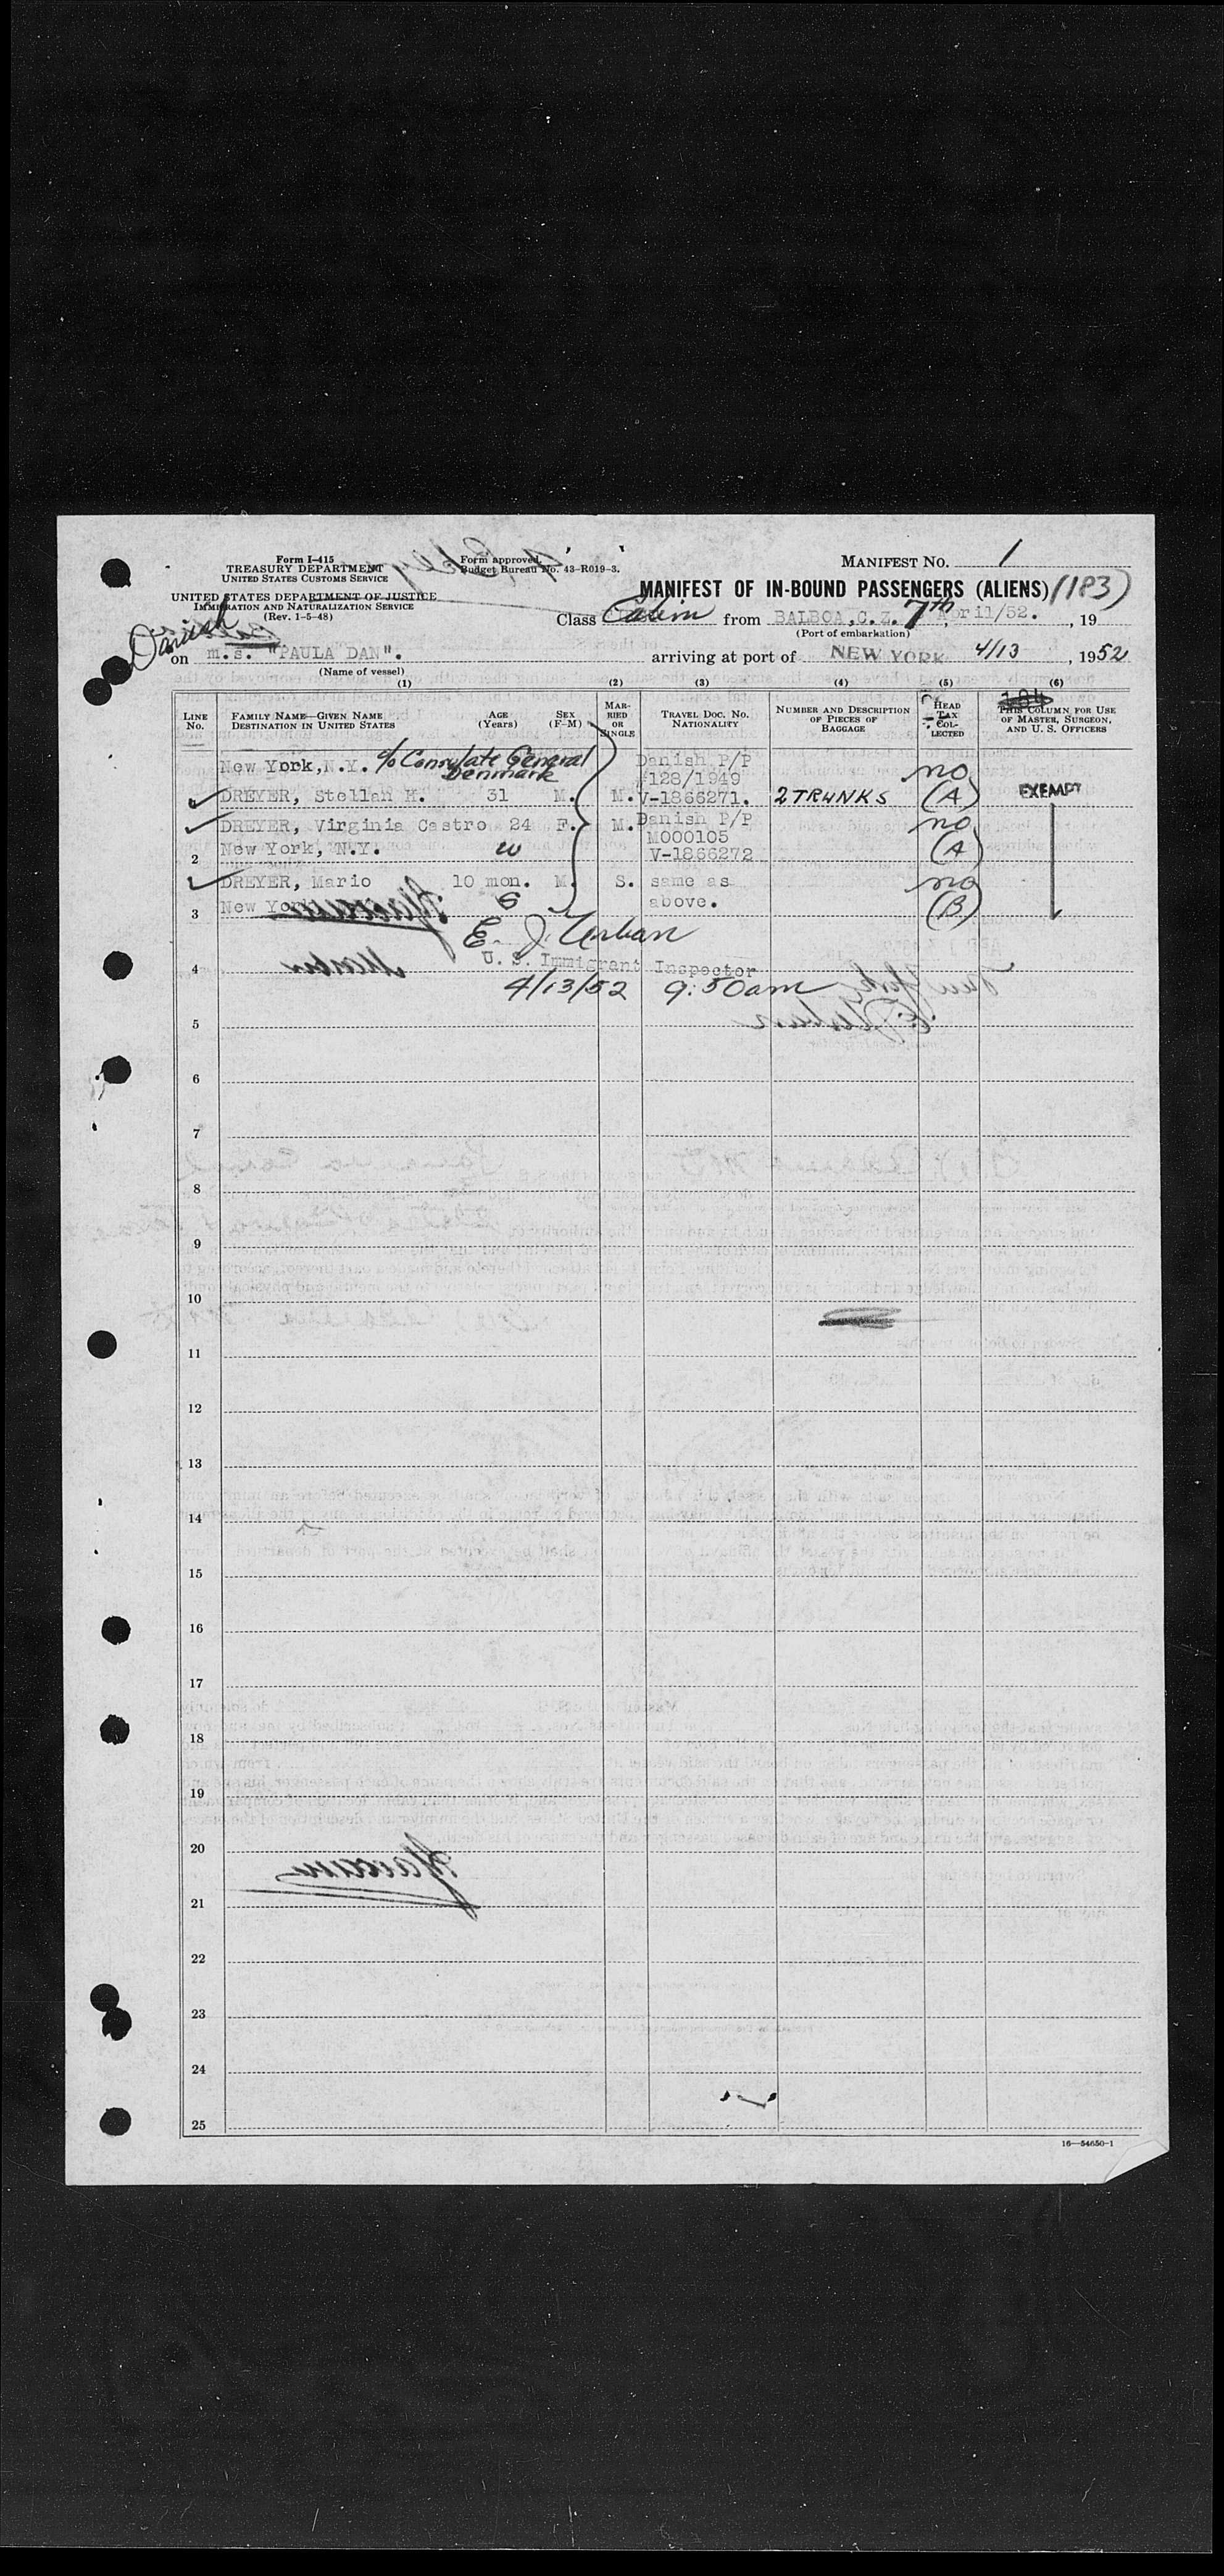 Form I-415
TREASURY DEPARTMENT
UNITED STATES CUSTOMS SERVICE
UNITED STATES DEPARTMENT OF JUSTICE
IMMIGRATION AND NATURALIZATION SERVICE
(Rev. 1-5-48)
Form approved.
Budget Bureau No. 43-R019-3.
MANIFEST NO. 1
MANIFEST OF IN-BOUND PASSENGERS (ALIENS) (183)
Class Cabin from BALBOA, C. Z. 7th April/52. , 19
(Port of embarkation)
Danish
on m.s. "PAULA DAN". arriving at port of NEW YORK 4/13 , 1952
(Name of vessel)
(1) (2) (3) (4) (5) (6)
LINE No. FAMILY NAME—GIVEN NAME DESTINATION IN UNITED STATES AGE (Years) SEX (F-M) MARRIED OR SINGLE TRAVEL DOC. NO. NATIONALITY NUMBER AND DESCRIPTION OF PIECES OF BAGGAGE HEAD TAX COLLECTED THIS COLUMN FOR USE OF MASTER, SURGEON, AND U. S. OFFICERS
New York, N.Y. c/o Consulate General Denmark Danish P/P
#128/1949 no
DREYER, Stellan H. 31 M. M. V-1866271. 2 TRUNKS (A) EXEMPT
DREYER, Virginia Castro 24 F. M. Danish P/P no
New York, N.Y. w M000105
2 V-1866272 (A)
DREYER, Mario 10 mon. M. S. same as no
3 New York 6 above. (B)
E. J. Urban
4 U. S. Immigrant Inspector
4/13/52 9:50am
5
6
7
8
9
10
11
12
13
14
15
16
17
18
19
20
21
22
23
24
25
16—54650-1